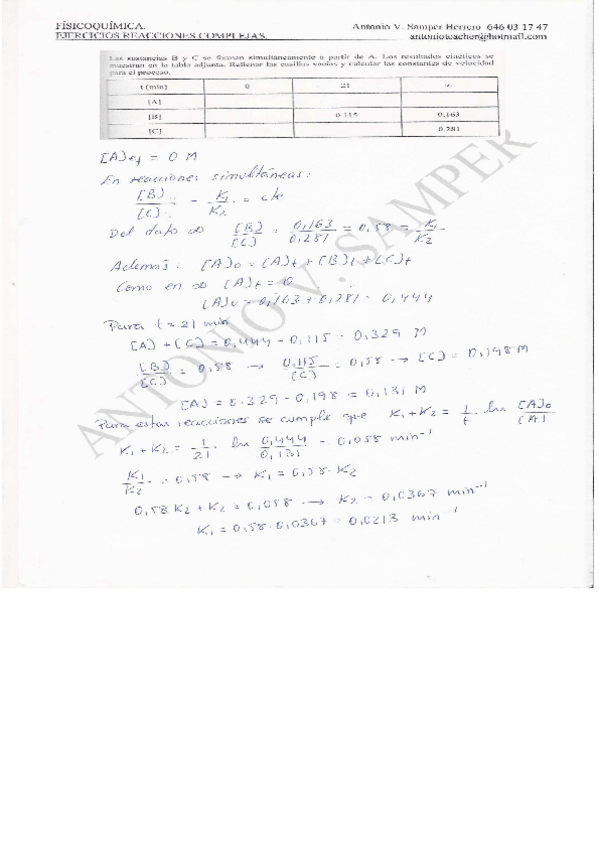 FÍSICOQUÍMICA. Antonio V. Samper Herrero 646 03 17 47
EJERCICIOS REACCIONES COMPLEJAS. antonioteacher@hotmail.com
Las sustancias B y C se forman simultaneamente a partir de A. Los resultados cinéticos se
muestran en la tabla adjunta. Rellenar las casillas vacías y calcular las constantes de velocidad
para el proceso.
t (min) 0 21 ∞
[A]
[B] 0.115 0.163
[C] 0.281
[A]eq = 0 M
En reacciones simultáneas:
[B]/[C] = K1/K2 = cte
Del dato ∞ [B]/[C] = 0,163/0,281 = 0,58 = K1/K2
Además: [A]0 = [A]t + [B]t + [C]t
Como en ∞ [A]t = 0
[A]0 = 0,163 + 0,281 = 0,444
Para t = 21 min
[A] + [C] = 0,444 - 0,115 = 0,329 M
[B]/[C] = 0,58 → 0,115/[C] = 0,58 → [C] = 0,198 M
[A] = 0.329 - 0,198 = 0,131 M
Para estas reacciones se cumple que K1 + K2 = 1/t · ln [A]0/[A]
K1 + K2 = 1/21 ln 0,444/0,131 = 0,058 min⁻¹
K1/K2 = 0,58 → K1 = 0,58 · K2
0,58 K2 + K2 = 0,058 → K2 = 0,0367 min⁻¹
K1 = 0,58 · 0,0367 = 0,0213 min⁻¹
ANTONIO V. SAMPER